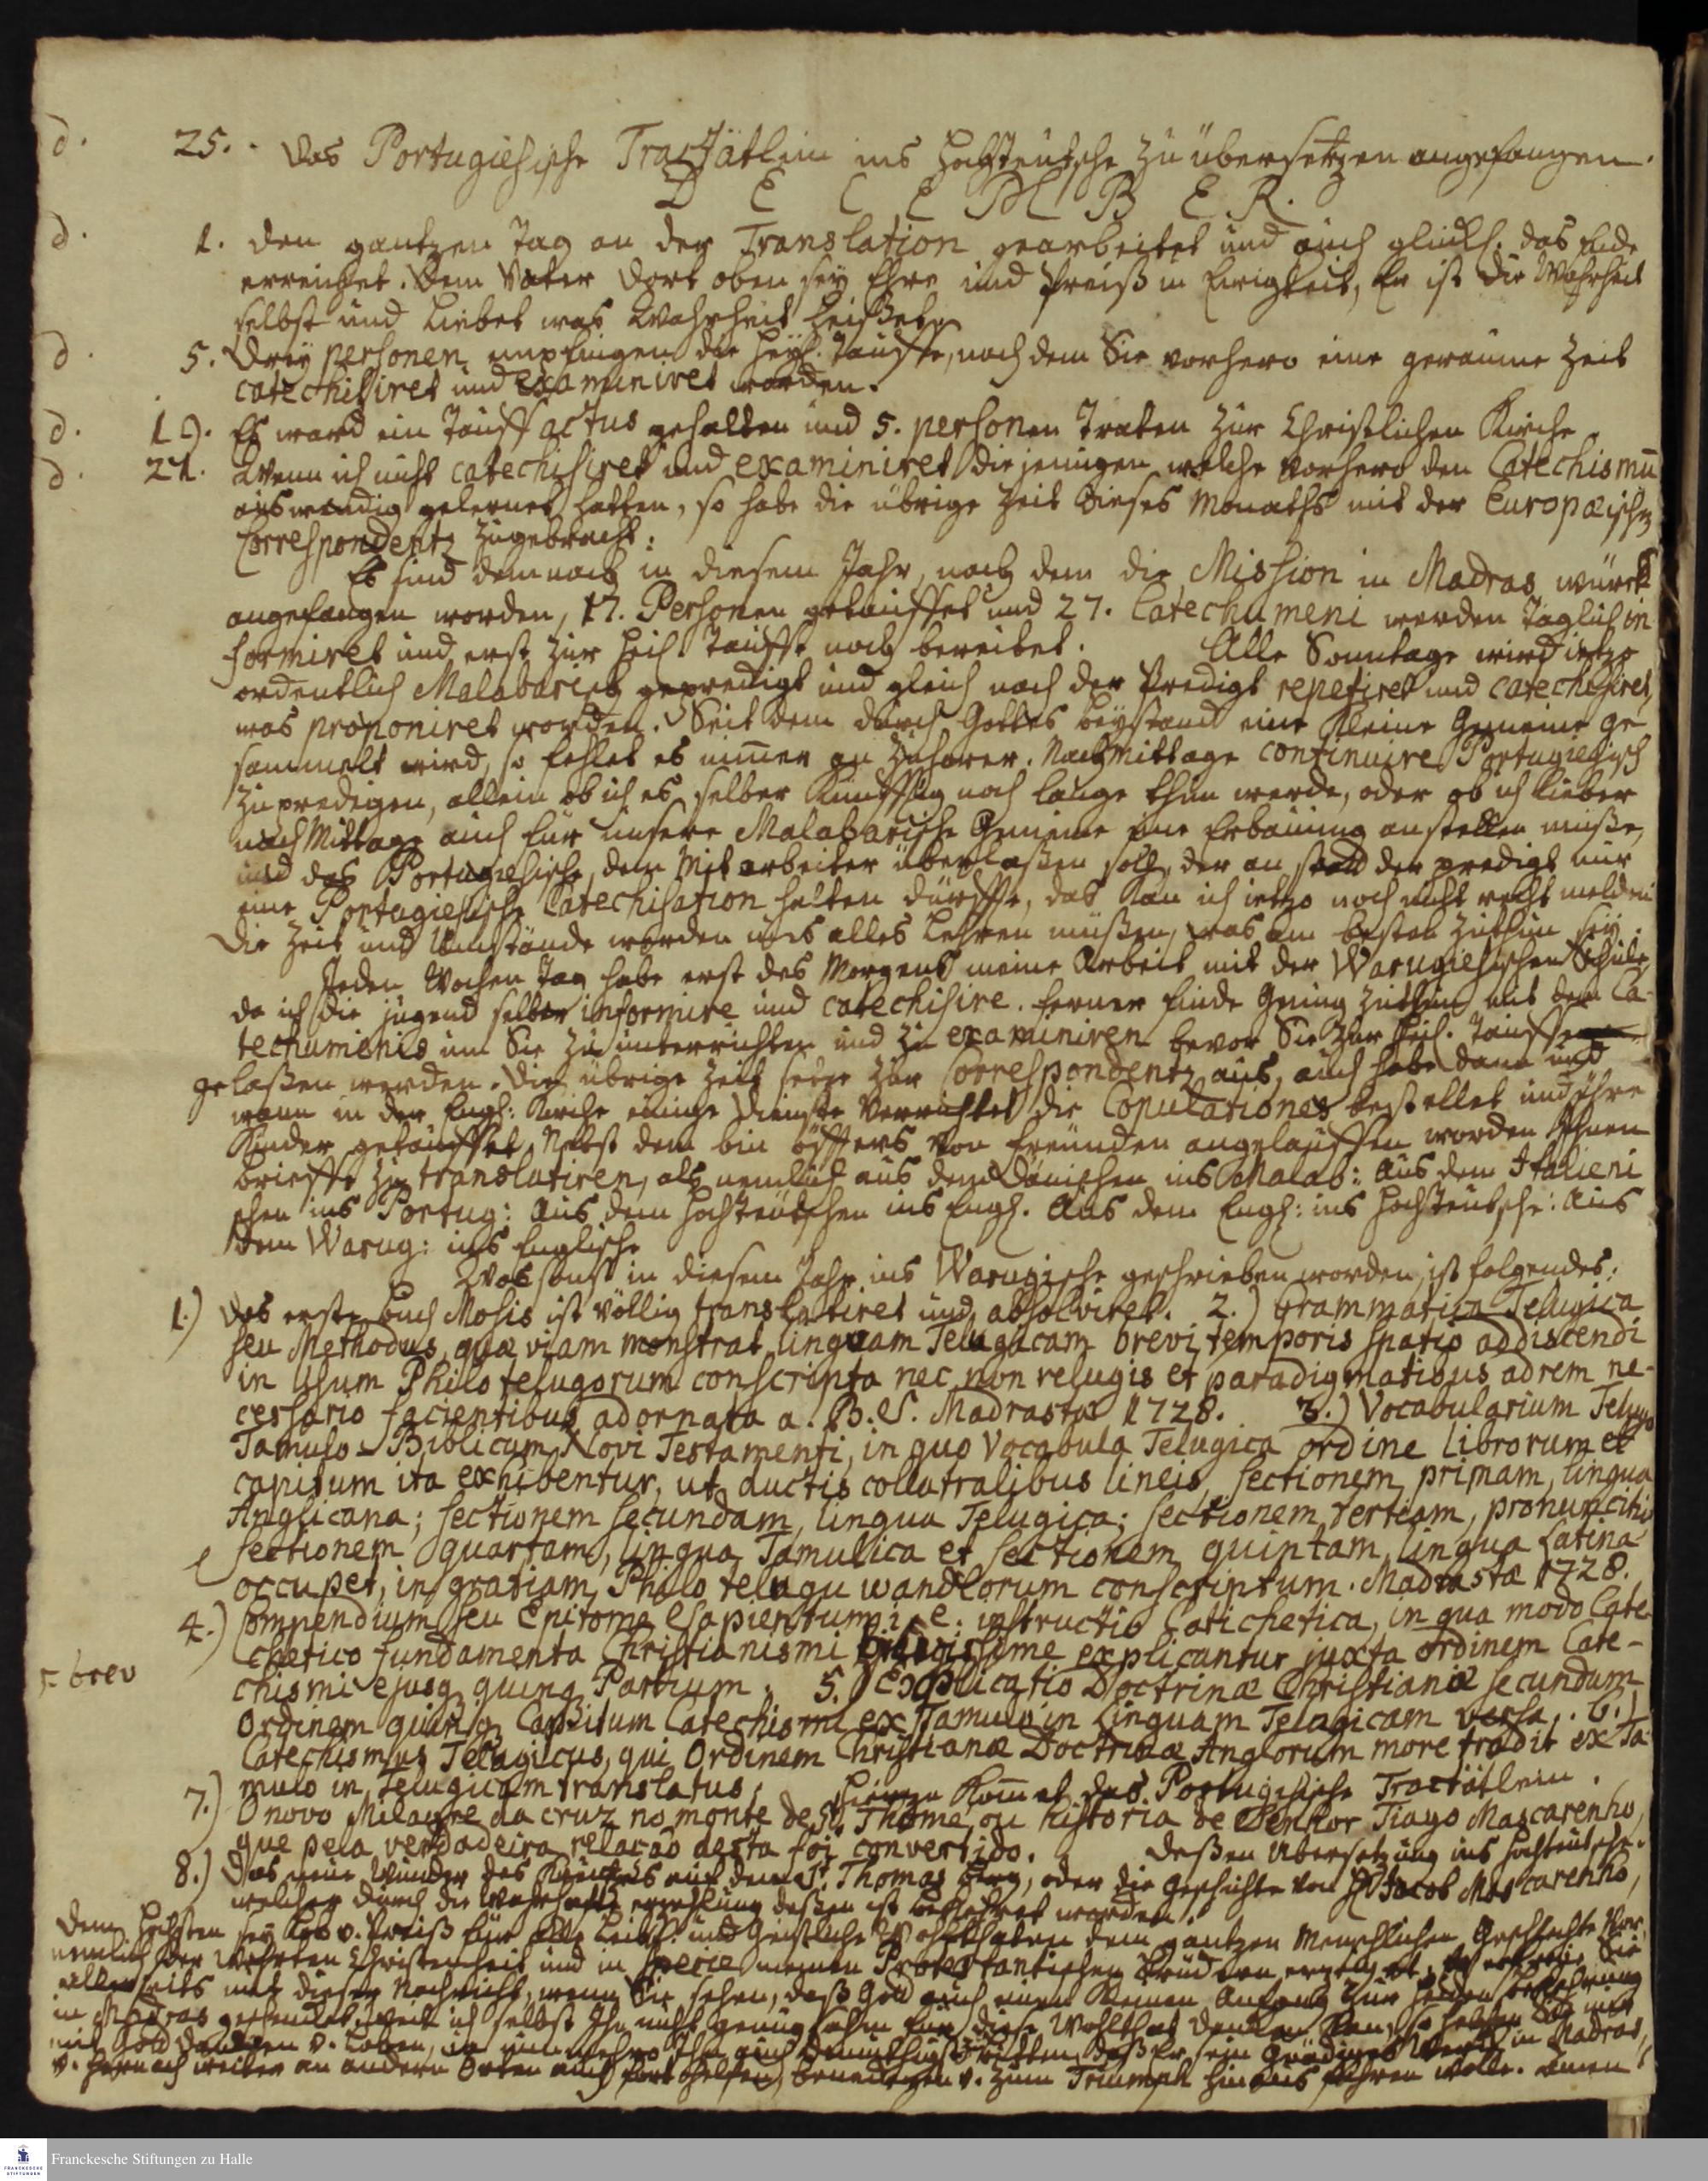 d. 25. Das Portugiesische Tractätlein ins Hochteutsche zu übersetzen angefangen.
DECEMBER.
d. 1. den gantzen Tag an der Translation gearbeitet und auch glückl. das Ende
erreichet. Dem Vater dort oben sey Ehre und Preiß in Ewigkeit, Er ist die Wahrheit
selbst und liebet was Wahrheit heißet.
d. 5. Drey personen empfingen die Heyl. Tauffe, nach dem Sie vorhero eine geraume Zeit
catechisiret und examiniret worden.
d. 19. Es ward ein Tauff actus gehalten und 5. personen traten zur Christlichen Kirche.
d. 21. Wenn ich nicht catechisiret und examiniret diejenigen welche vorhero den Catechismū
auswendig gelernet hatten, so habe die übrige Zeit dieses Monaths mit der Europæischen
Correspondentz zugebracht.
Es sind demnach in diesem Jahr, nach dem die Mission in Madras würckl.
angefangen worden, 17. Personen getauffet und 27. Catechumeni werden täglich in
formiret und erst zur Heil. Tauffe noch bereitet. Alle Sonntage wird ietzo
ordentlich Malabarisch gepredigt und gleich nach der Predigt repetiret und catechisiret,
was proponiret worden. Seit dem durch Gottes beystand eine kleine Gemeine ge
sammelt wird, so fehlet es nim̄er an Zuhörer. Nachmittage continuire Portugiesisch
zu predigen, allein ob ich es selber künfftig noch lange thun werde, oder ob ich lieber
nach Mittage auch für unsere Malabarische Gemeine eine Erbauung anstellen müße,
und das Portugiesische dem Mitarbeiter überlaßen soll, der an statt der predigt nur
eine Portugiesische Catechisation halten dürffte, das kan ich ietzo noch nicht recht melden
Die Zeit und Umstände werden uns alles lehren müßen, was am besten zuthun sey.
Jeden Wochen Tag habe erst des Morgens meine Arbeit mit der Warugiesischen Schule,
da ich die jugend selber informire und catechisire. ferner finde Genug zuthun mit den Ca-
techumenis um Sie zu unterrichten und zu examiniren bevor Sie zur Heil. Tauffe
gelaßen werden. Die übrige Zeit setze zur Correspondentz aus, auch habe dann und
wann in der Engl: Kirche einige Dienste verrichtet die Copulationes bestellet und ihre
Kinder getauffet. Nebst dem bin öffters von Freunden angelauffen worden Ihnen
brieffe zu translatiren, als nemlich aus dem Dänischen ins Malab: Aus dem Italieni
schen ins Portug: Aus dem Hochteutschen ins Engl. Aus dem Engl: ins Hochteutsche: Aus
dem Warug: ins Englische
Was sonst in diesem Jahr ins Warugische geschrieben worden, ist folgendes:
1.) Das erste Buch Mosis ist völlig translatiret und absolviret. 2.) Grammatica Telugica
seu Methodus, quæ viam monstrat linguam Telugicam brevi temporis spatio addiscendi
in usum Philo telugorum conscripta nec non relugis et paradigmatibus ad rem ne-
cessario facientibus adornata a. B. S. Madrastæ 1728. 3.) Vocabularium Telugo
Tamulo-Biblicum Novi Testamenti, in quo Vocabula Telugica ordine librorum et
capitum ita exhibentur, ut ductis collatralibus lineis, sectionem primam, lingua
Anglicana; sectionem secundam, lingua Telugica; sectionem tertiam, pronunciatio
sectionem quartam, lingua Tamulica et sectionem quintam, lingua Latina
occupet, in gratiam Philo telugu wandlorum conscriptum. Madrastæ 1728.
4.) Compendium seu Epitome Sapientum i. e. instructio Catichetica, in qua modo Cate-
chetico fundamenta Christianismi explicantur juxta ordinem Cate-
brev
chismi ejusq quinq Partium. 5.) Explicatio Doctrinæ Christianæ secundum
Ordinem quinq Capitum Catechismi ex Tamulo in Linguam Telugicam versa. 6.)
Catechismus Telugicus, qui Ordinem Christianæ Doctrinæ Anglorum more tradit ex Ta-
mulo in Telugicam translatus. Hierzu kom̄et das Portugisische Tractätlein.
7.) O novo Milagre da cruz no monte de St. Thome, ou historia de Senhor Tiago Mascarenho,
que pela verdadeira relação desta foi convertido. Deßen Übersetzung ins Hochteutsche.
8.) Das neue Wunder des Kreutzes auf dem St. Thomas Berg, oder die Geschichte von H. Jacob Mascarenho,
welcher durch die wahrhaffte erzehlung deßen ist bekehret worden.
Dem Höchsten sey Lob v. Preiß für alle Leibl. und Geistliche Wohlthaten dem gantzen Menschlichen Geschlechte
nemlich der Wehrten Christenheit und in specie meinen Protestantischen Brüdern erzeiget. Sie
allerseits mit dieser Nachricht, wenn Sie sehen, daß Gott auch einen kleinen Anfang zur Heyden bekehrung
in Madras gesendet, weil ich selbst Ihn nicht genugsahm für diese Wohlthat dancken kan, so helfen Sie mir
mit Gott dancken v. Loben, Ihn auch demüthigst bitten, daß Er sein Werck in Madras,
v. hernach weiter an andern Orten auch fort helfen, v. zum Triumph hinaus führen wolle. Amen
Franckesche Stiftungen zu Halle